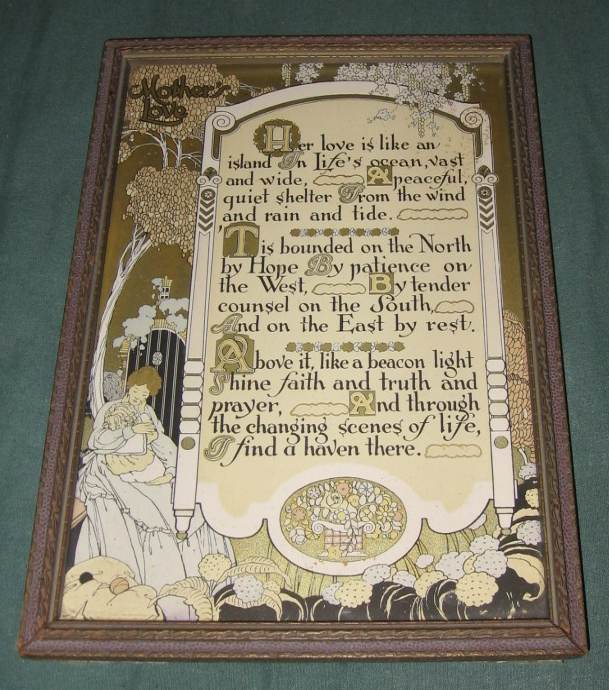 Mother's
Love
Her love is like an
island In Life's ocean, vast
and wide, A peaceful,
quiet shelter From the wind
and rain and tide.
'Tis bounded on the North
by Hope By patience on
the West, By tender
counsel on the South,
And on the East by rest.
Above it, like a beacon light
Shine faith and truth and
prayer, And through
the changing scenes of life,
I find a haven there.